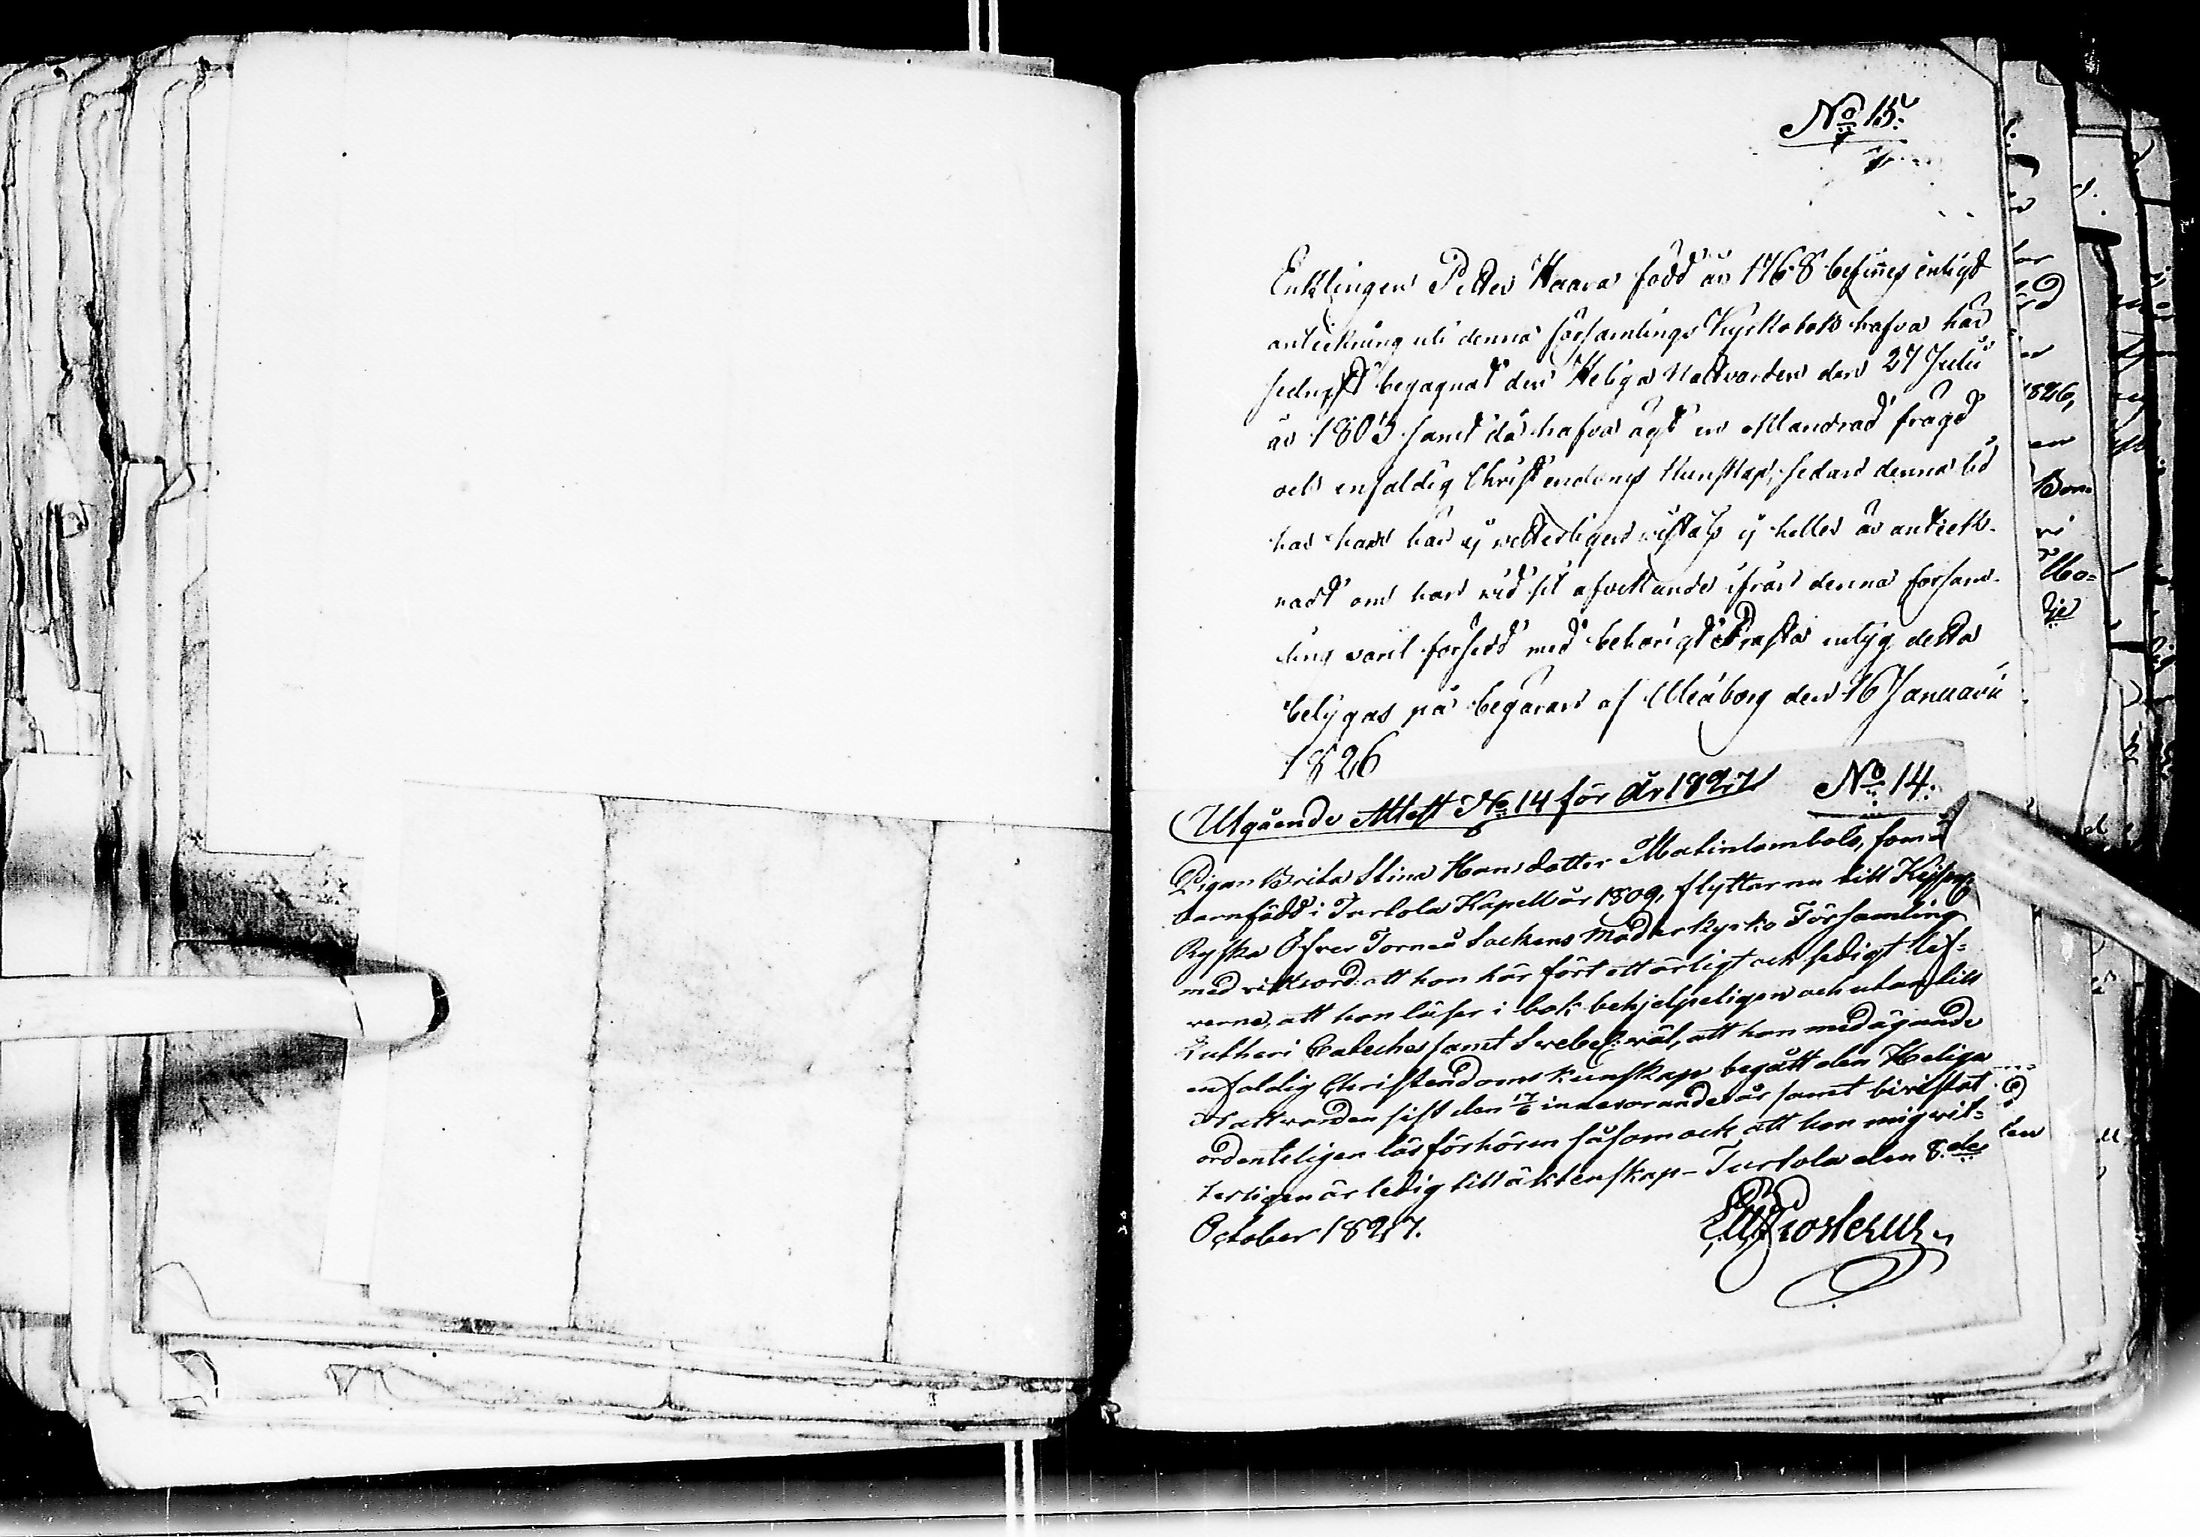 No 15.
Enklingen Petter Haara född år 1768 befinnes enligt
anteckning uti denna församlings Kyrkobok hafva här
sednast begagnat den Heliga Nattvarden den 27 Julii
år 1805 samt då hafva ägt en oklandrad frägd
och enfaldig Christendoms kunskap; sedan denna tid
har han här ej vetterligen vistats ej heller är anteck-
nadt om han vid sit afvikande ifrån denna församl-
ling varit försedd med behörigt Prästa intyg detta
betygas på begäran af Uleåborg den 16 Januarii
1826
Utgående Attest No 14 för år 1827 No 14.
Pigan Brita Stina Hansdotter Matinlombolo, som är
barnfödd i Turtola Kapell år 1809, flyttar nu till
Ryska Öfver Torneå Sockens Moderkyrko Församling
med vitsord: att hon här fört ett ärligt och sedigt lef-
verne, att hon läser i bok behjelpeligen och utan till
Lutheri Cateches samt Svebel: väl, att hon med ägande
enfaldig Christendoms kunskap begått den Heliga
Nattvarden sist den 17/6 innevarande år samt bivistat
ordenteligen läsförhören såsom ock att hon mig vit-
terligen är ledig till äktenskap - Turtola den 8.de
October 1827.
1826,